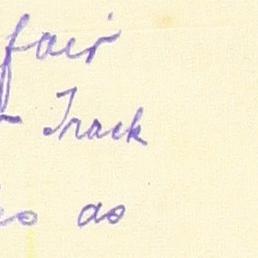 fair
Track
as